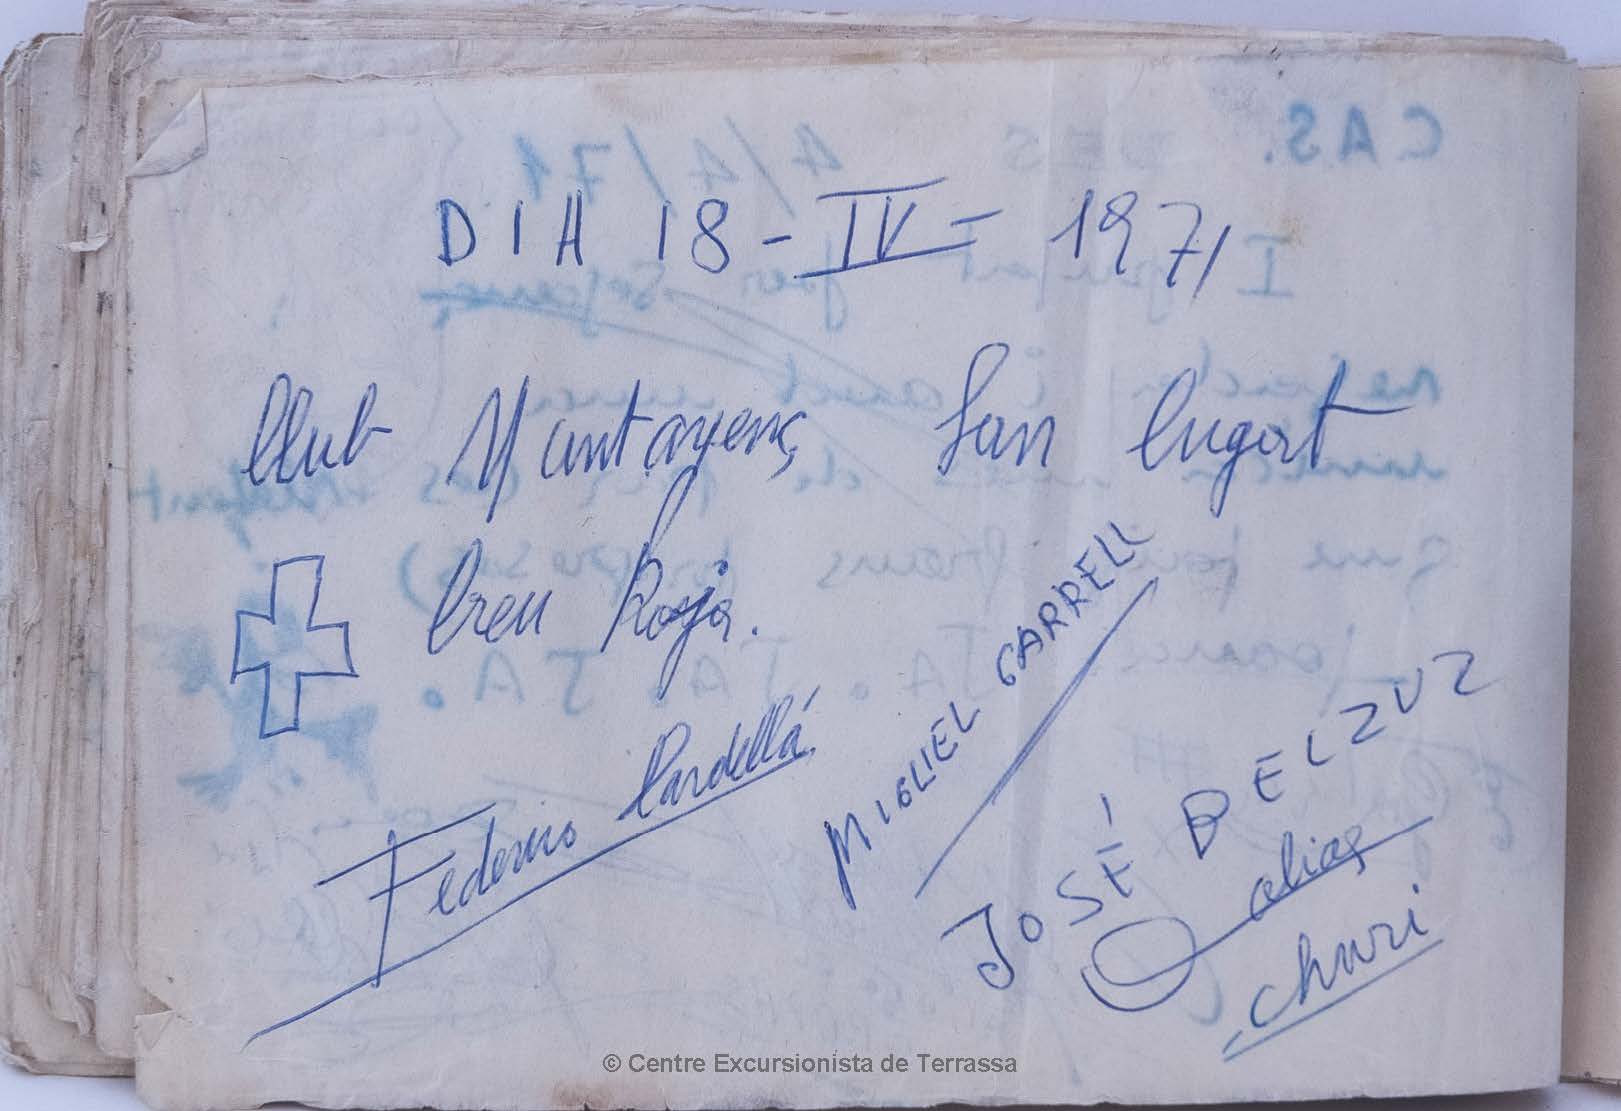 DIA 18-IV=1971
Club Muntayenç San Cugat
Creu Roja.
Federico Cardellá
MIGUEL CARRELL
JOSÉ BELZUZ
alias
churi
© Centre Excursionista de Terrassa